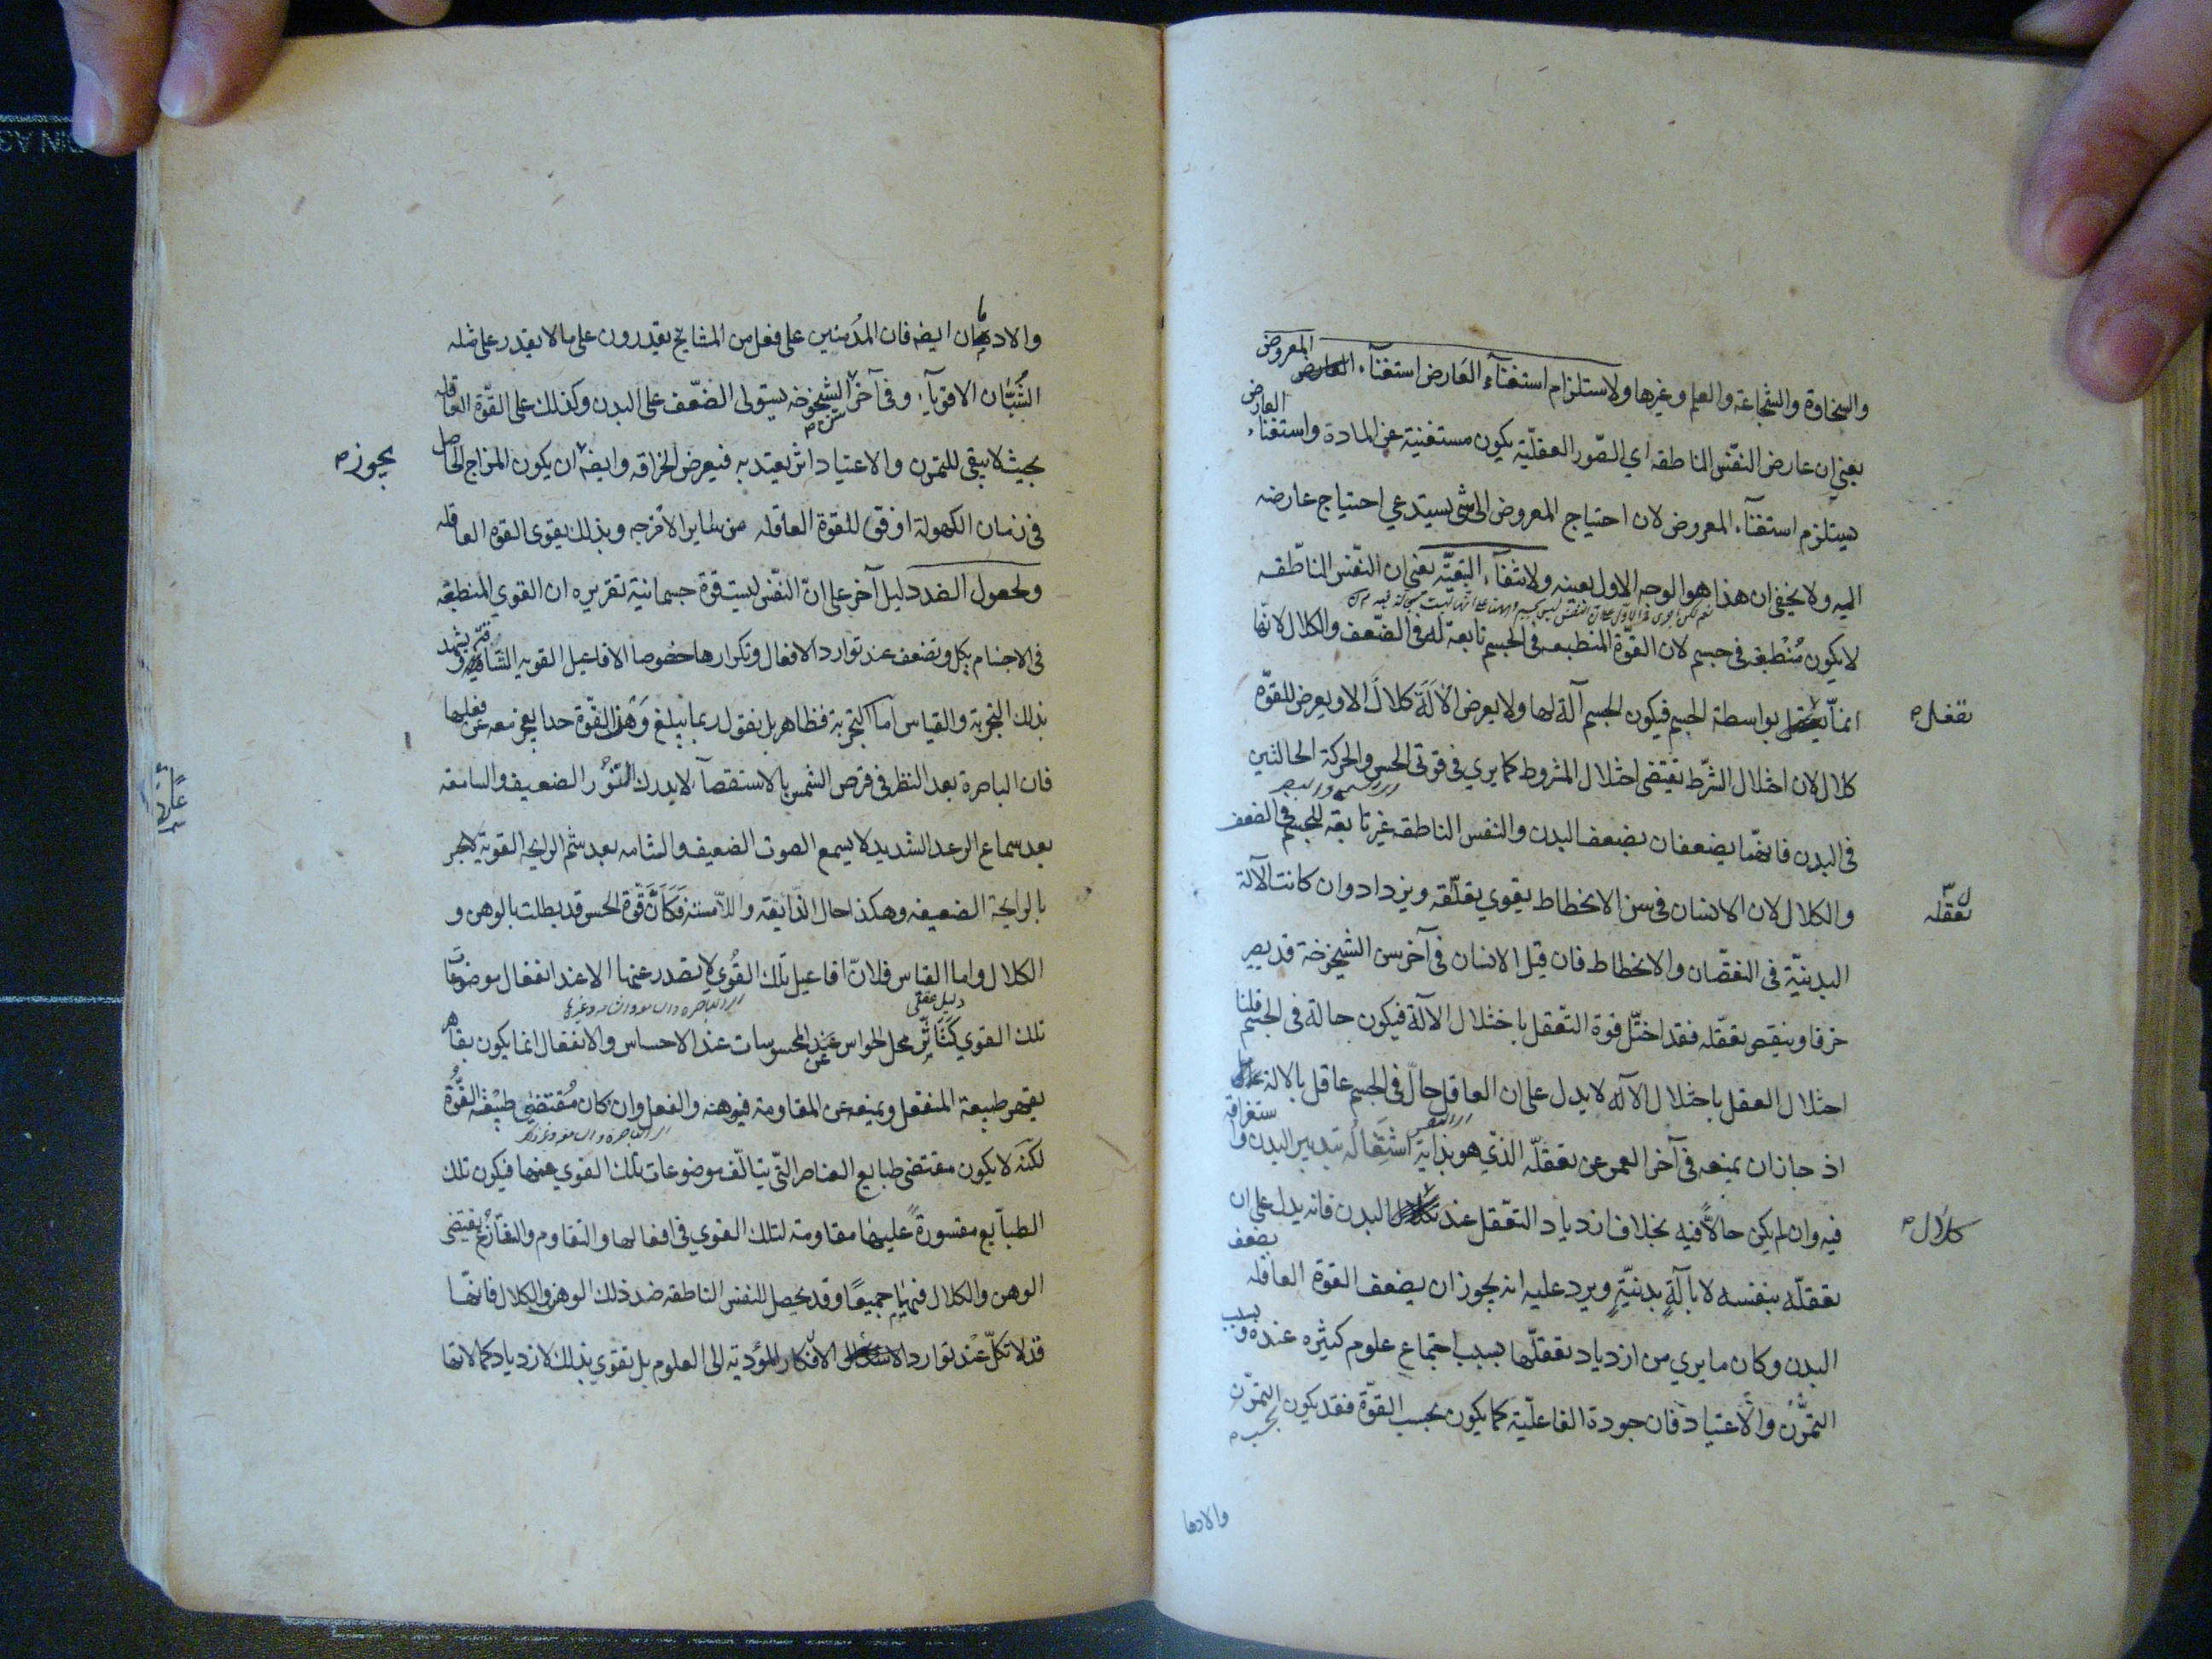 والسخاوة والشجاعة والعلم وغيرها ولاستلزام استغناء العارض استغناء المعروض
يعني ان عارض النفس الناطقه اي الصور العقلية يكون مستغنية عن المادة واستغناء العارض
يستلزم استغناء المعروض لان احتياج المعروض الى شي يستدعي احتياج عارضه
اليه ولا يخفى ان هذا هو الوجه الاول بعينه ولانتفاء التبعية يعني ان النفس الناطقه
لا يكون منطبعة في جسم لان القوة المنطبعه في الجسم تابعة له في الضعف والكلال لانها
انما تفعل بواسطة الجسم فيكون الجسم آلة لها ولا يعرض الآلة كلال الا ويعرض للقوة
كلال لان اختلال الشرط يقتضى اختلال المشروط كما يري في قوتى الحس والحركة الحالتين
في البدن فانهما يضعفان بضعف البدن والنفس الناطقه غير تابعة للجسم في الضعف
والكلال لان الانسان في سن الانحطاط يقوي تعقله ويزداد وان كانت الآلة
البدنية في النقصان والانحطاط فان قيل الانسان في آخر سن الشيخوخة قد يصير
خرفا وينقص تعقله فقد اختل قوة التعقل باختلال الآلة فيكون حالة في الجسم قلنا
اختلال العقل باختلال الآله لا يدل على ان العاقل حال في الجسم عاقل بالالة
اذ جاز ان يمنعه في آخر العمر عن تعقله الذي هو بذاته اشتغاله بتدبير البدن واستغراقه
فيه وان لم يكن حالا فيه بخلاف ازدياد التعقل عند كلال البدن فانه يدل على ان
تعقله بنفسه لا بآلة بدنية ويرد عليه انه يجوز ان يضعف القوة العاقله بضعف
البدن وكان ما يري من ازدياد تعقلها بسبب اجتماع علوم كثيره عنده وبسبب
التمرن والاعتياد فان جودة الفاعلية كما يكون بحسب القوة فقد يكون بحسب التمرن
والادما
تفعل
تعقله
كلال
والادمان ايضه فان المدمنين على فعل من المشايخ يقدرون على ما لا يقدر على مثله
الشبان الاقوياء وفي آخر سن الشيخوخه يستولى الضعف على البدن وكذلك على القوة العاقله
بحيث لا يبقى للتمرن والاعتياد اثر يعتد به فيعرض الخرافه وايضه ان يكون المزاج الحاصل
في زمان الكهولة اوفق للقوة العاقله من ساير الامزجه وبذلك يقوى القوة العاقله
ولحصول الضد دليل آخر على ان النفس ليست قوة جسمانية تقريره ان القوي المنطبعه
في الاجسام يكل وتضعف عند توارد الافعال وتكرارها خصوصا الافاعيل القويه الشاقة يشهد
بذلك التجربة والقياس اما التجربة فظاهر بل نقول ربما يبلغ وهن القوة حدا يعجز معه عن فعلها
فان الباصرة بعد النظر في قرص الشمس بالاستقصاء لا يدرك النور الضعيف والسامعه
بعد سماع الرعد الشديد لا يسمع الصوت الضعيف والشامه بعد شم الرايحة القوية لا يحس
بالرايحة الضعيفه وهكذا حال الذائقه واللامسة فكان قوة الحس قد بطلت بالوهن و
الكلال واما القياس فلان افاعيل تلك القوي لا يصدر عنها الا عند انفعال موضوعات
دليل عقلي
تلك القوي كتاثر محل الحواس عن المحسوسات عند الاحساس والانفعال انما يكون بقاهر
يقهر طبيعة المنفعل ويمنعه عن المقاومة فيوهنه والفعل وان كان مقتضى طبيعة القوة
لكنه لا يكون مقتضى طبايع العناصر التي يتالف موضوعات تلك القوي منها فيكون تلك
الطبايع مقسورة عليها مقاومة لتلك القوي في افعالها والتقاوم والتنازع يقتضى
الوهن والكلال فيهما جميعا وقد يحصل للنفس الناطقه ضد ذلك الوهن والكلال فانها
قد لا تكل عند توارد الافكار المؤدية الى العلوم بل تقوي بذلك لازدياد كمالاتها
يجوز